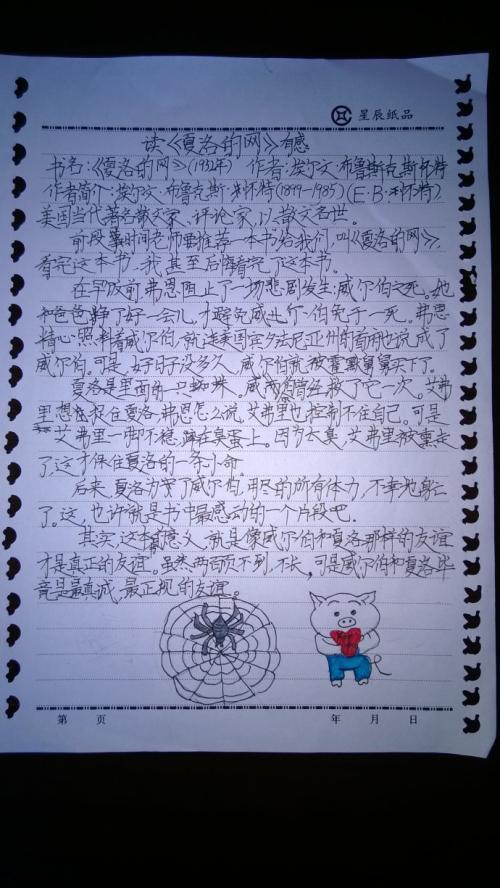 星辰纸品
读《夏洛的网》有感
书名:《夏洛的网》(1932年) 作者:埃尔文·布鲁斯克斯·怀特
作者简介:埃尔文·布鲁克斯·怀特(1899-1985)(E·B·怀特)
美国当代著名散文家、评论家,以散文名世。
前段时间老师推荐一本书给我们,叫《夏洛的网》,
看完这本书,我甚至后悔看完了这本书。
在早饭前,弗恩阻止了一场悲剧发生:威尔伯之死。她
和爸爸争了好一会儿,才避免威尔伯免于一死。弗恩
精心照料着威尔伯,就连美国宾夕法尼亚州的首府也说成了
威尔伯。可是,好日子没多久,威尔伯就被霍默舅舅买下了。
夏洛是里面的一只蜘蛛。威尔伯曾经救了它一次。艾弗
里想在捉住夏洛,弗恩怎么说,艾弗里也控制不住自己。可是
艾弗里一脚不稳,摔在臭蛋上。因为太臭,艾弗里被熏走
了,这才保住夏洛的一条小命。
后来,夏洛为了威尔伯,用尽的所有体力,不幸地身亡
了。这,也许就是书中最感动的一个片段吧。
其实,这本书的意义,就是像威尔伯和夏洛那样的友谊
才是真正的友谊。虽然两百页不到,不长,可是威尔伯和夏洛毕
竟是最真诚、最正规的友谊。
第 页 年 月 日